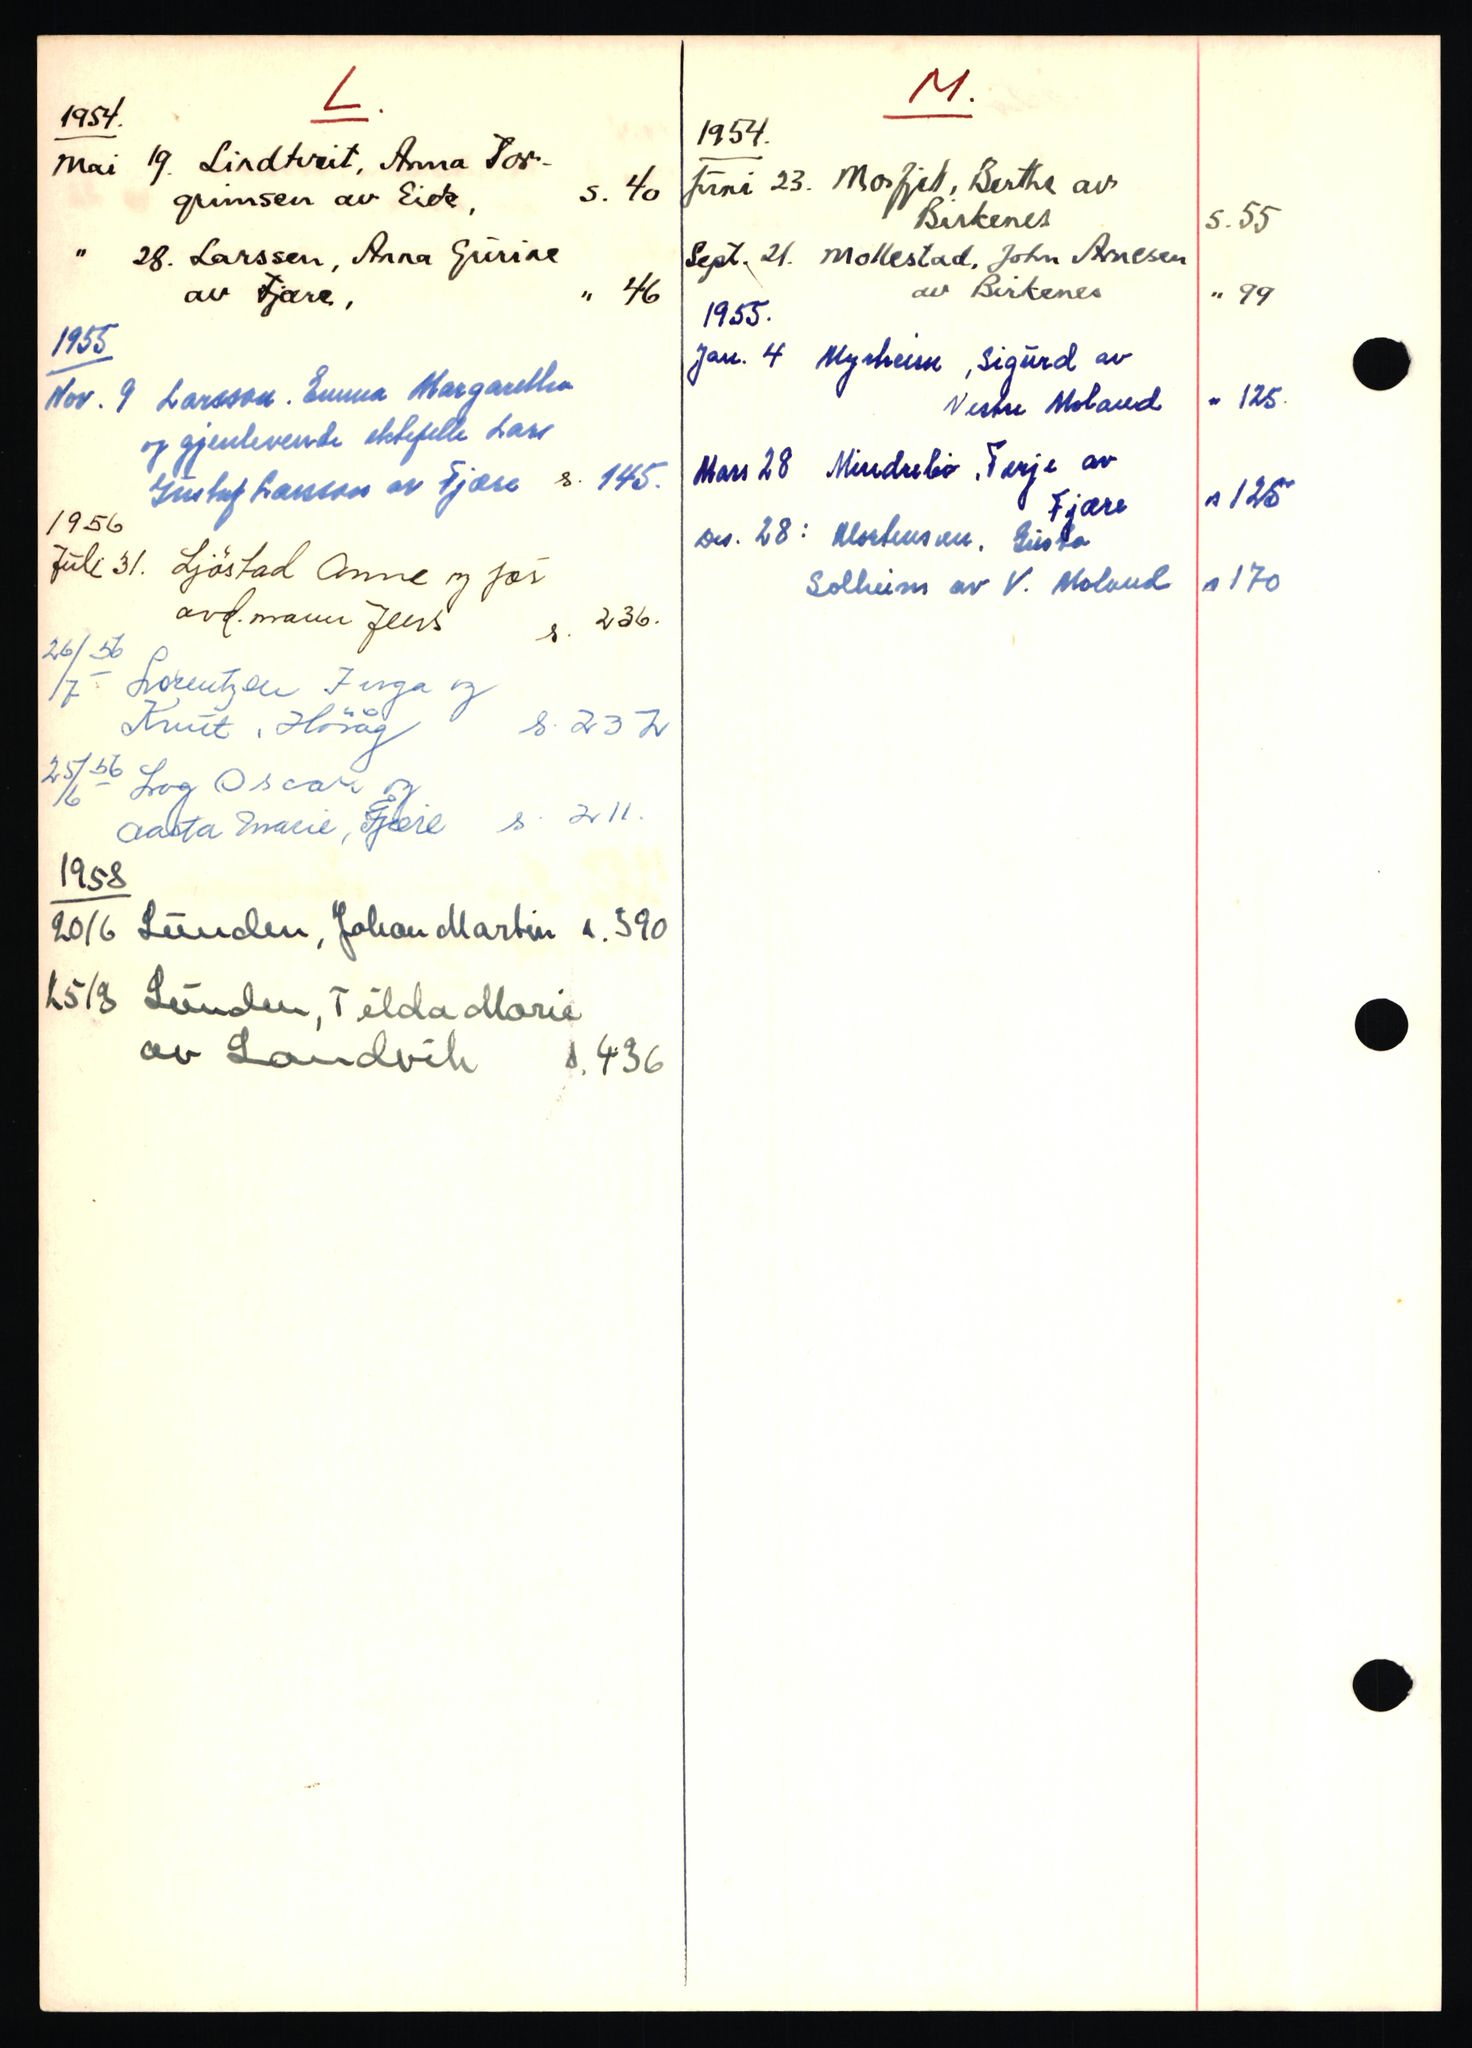 L.
1954.
Mai 19. Lindtveit, Anna Tor-
grimsen av Eide, s. 40
" 28. Larssen, Anna Gurine
av Fjære, " 46
1955
Nov. 9 Larsson. Emma Margaretha
og gjenlevende ektefelle Lars
Gustaf Larsson av Fjære s. 145.
1956
Juli 31. Ljöstad Anne og
avd. mann Jens s. 236.
26/7 56 Lorentzen Inga og
Knut, Hövåg s. 232
25/6 56 Log Oscar og
Aasta Marie, Fjære s. 211.
1958
20/6 Lunden, Johan Martin s. 390
25/8 Lunden, Tilda Marie
av Landvik s. 436
M.
1954.
Juni 23. Mosfjell, Berthe av
Birkenes s. 55
Sept. 21. Mollestad, John Arnesen
av Birkenes " 99
1955.
Jan. 4 Myrheim, Sigurd av
Vestre Moland " 125.
Mars 28 Mindrebö, Terje av
Fjære " 125
Des. 28: Mortensen, Gusta
Solheim av V. Moland " 170